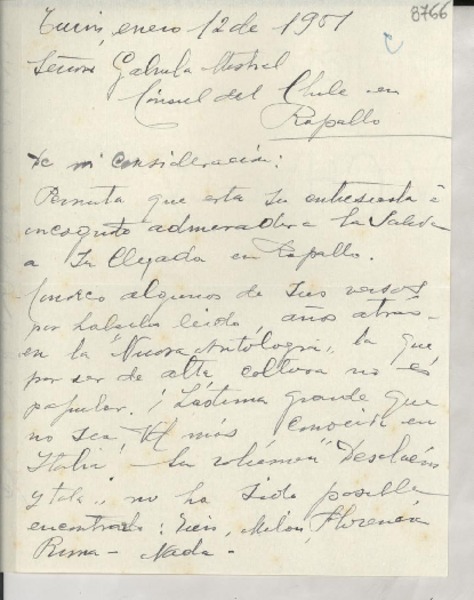 8766
Turin, enero 12 de 1951
Señora Gabriela Mistral
Consul del Chile en
Rapallo
De mi consideración:
Permita que esta su entusiasta é
incognita admiradora la salude
a su llegada en Rapallo.
Conozco algunos de sus versos
por haberlos leido, años atrás
en la "Nuova Antologia", la que
por ser de alta coltura no es
popular. ¡Lástima grande que
no sea Vd más conocida en
Italia! Su volúmen "Desolación
y tala" no ha sido posible
encontrarlo: Turin, Milan, Florencia
Roma - Nada -